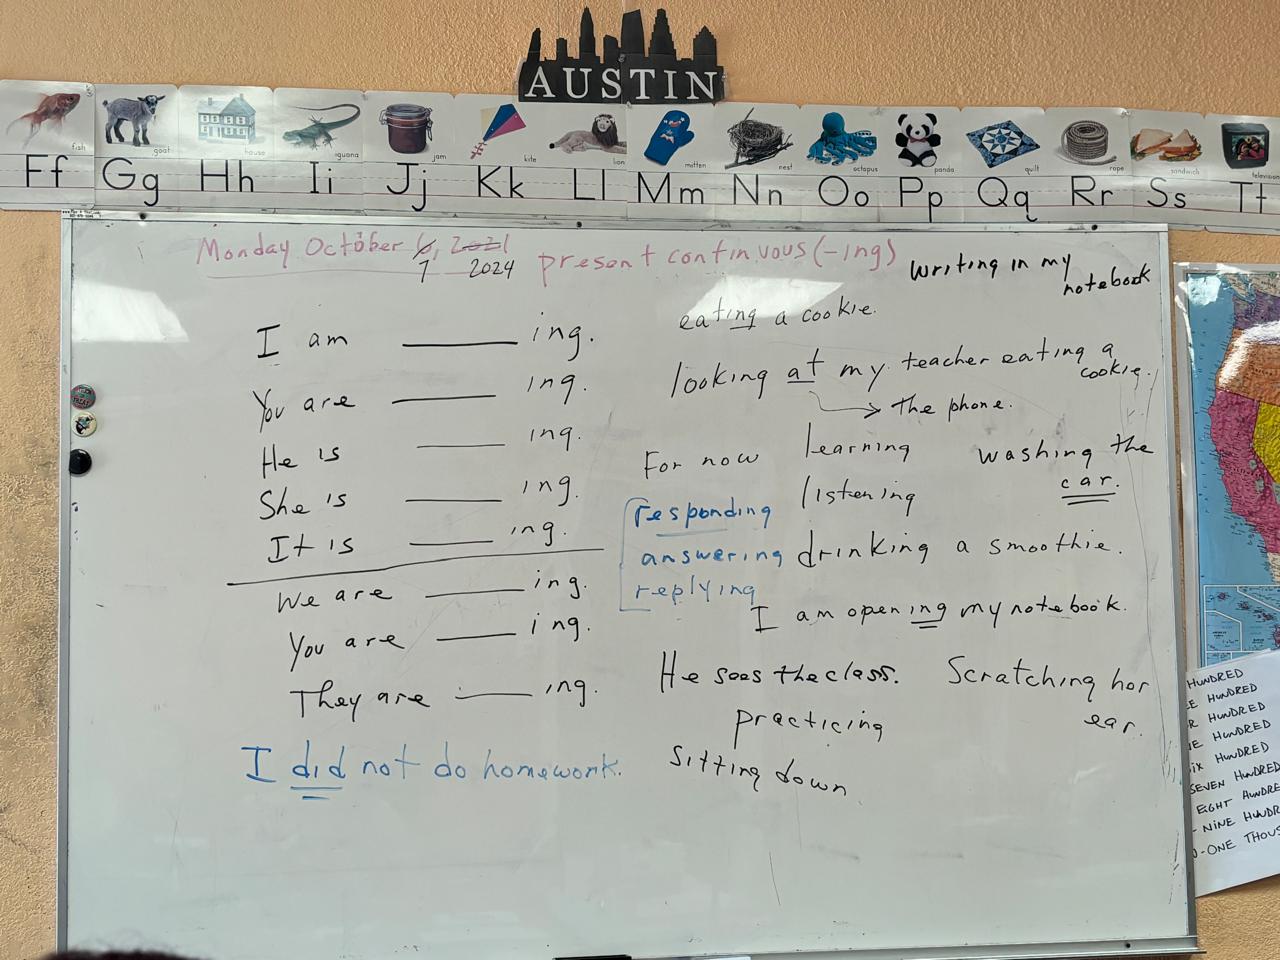 AUSTIN
fish
goat
house
iguana
jam
kite
lion
mitten
nest
octopus
panda
quilt
rope
sandwich
television
Ff Gg Hh Ii Jj Kk Ll Mm Nn Oo Pp Qq Rr Ss Tt
Monday October 6, 2021
7 2024
present continuous (-ing)
writing in my
notebook
I am ______ ing.
You are ______ ing.
He is ______ ing.
She is ______ ing.
It is ______ ing.
We are ______ ing.
You are ______ ing.
They are ______ ing.
I did not do homework.
eating a cookie.
looking at my teacher eating a
cookie.
the phone.
For now learning
washing the
car.
listening
responding
answering
replying
drinking a smoothie.
I am opening my notebook.
He sees the class.
Scratching her
ear.
practicing
Sitting down
HUNDRED
E HUNDRED
R HUNDRED
E HUNDRED
SIX HUNDRED
SEVEN HUNDRED
EIGHT HUNDRE
- NINE HUNDR
-ONE THOUS